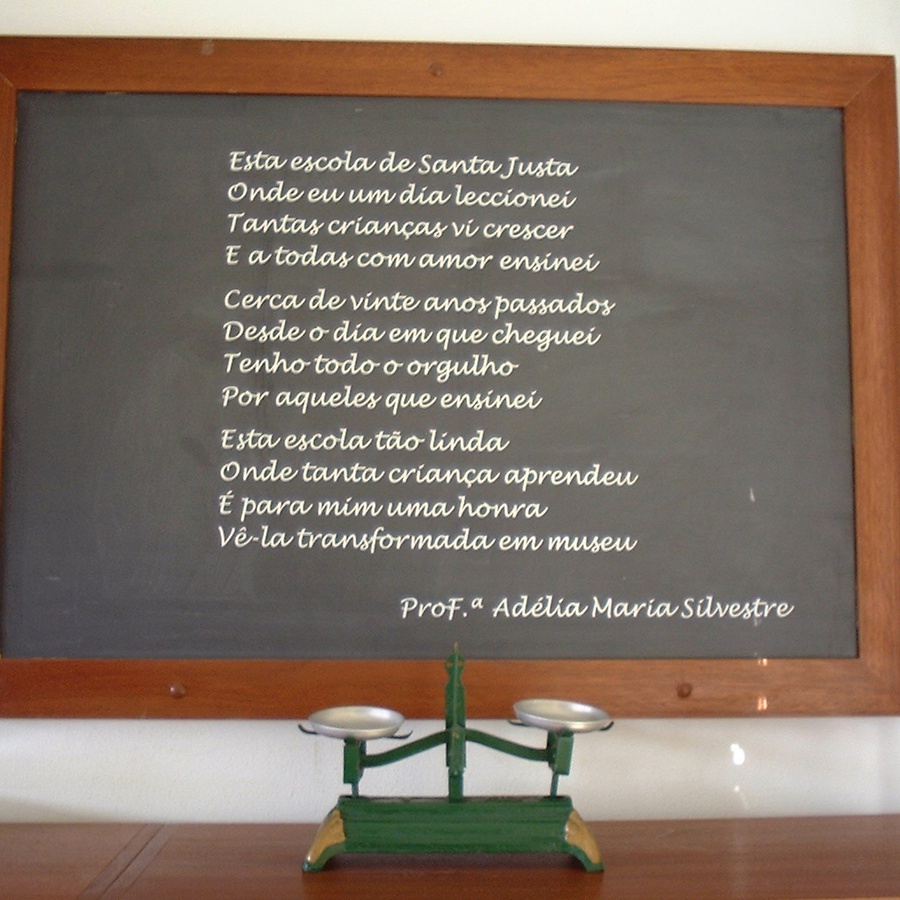 Esta escola de Santa Justa
Onde eu um dia leccionei
Tantas crianças vi crescer
E a todas com amor ensinei
Cerca de vinte anos passados
Desde o dia em que cheguei
Tenho todo o orgulho
Por aqueles que ensinei
Esta escola tão linda
Onde tanta criança aprendeu
É para mim uma honra
Vê-la transformada em museu
ProF.ª Adélia Maria Silvestre